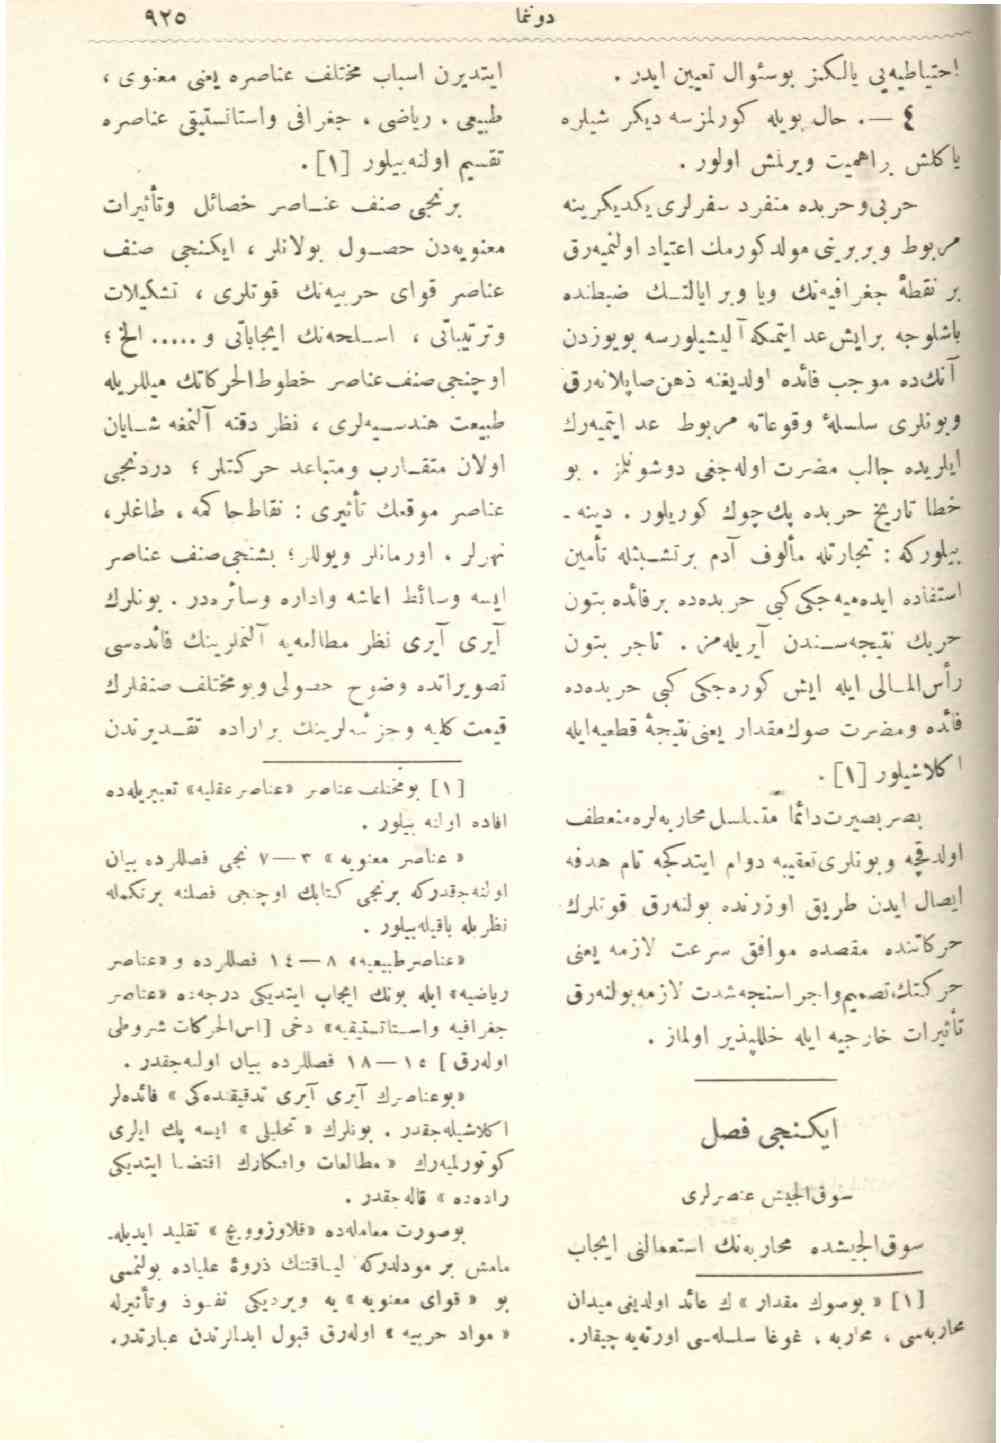 دونما
٩٢٥
احتیاطیه‌یی یالکز بوسئوال تعیین ایدر .
٤ — . حال بویله کورلمزسه دیکر شیلره
یاکلش براهمیت ویرلمش اولور .
حربی وحربده منفرد سفرلری یکدیکرینه
مربوط وبربرینی مولد کورمك اعتیاد اولنمیه‌رق
بر نقطهٔ جغرافیه‌نك ویا وبر ایالتــك ضبطنده
باشلوجه برایش عد ایتمکه آلیشیلورسه بویوزدن
آنك‌ده موجب فائده اولدیغنه ذهن صاپلانه‌رق
وبونلری سلسلهٔ وقوعاته مربوط عد ایتمیه‌رك
ایلریده جالب مضرت اوله‌جغی دوشونلمز . بو
خطا تاریخ حربده پك چوك کوریلور . دینه ـ
بیلورکه : تجارتله مألوف آدم برتشــبثله تأمین
استفاده ایده‌میه‌جکی کبی حربده‌ده برفائده بتون
حربك نتیجه‌ســندن آیریله‌مز . تاجر بتون
رأس‌المــالی ایله ایش کوره‌جکی کبی حربده‌ده
فائده ومضرت صوك مقدار یعنی نتیجهٔ قطعیه ایله
اکلاشیلور [١] .
بصر بصیرت دائما متسلسل محاربه‌لره منعطف
اولدقجه وبونلری تعقیبه دوام ایتدکجه تام هدفه
ایصال ایدن طریق اوزرنده بولنه‌رق قوتلرك
حرکاتنده مقصده موافق سرعت لازمه یعنی
حرکتك، تصمیم واجراسنجه شدت لازمه بولنه‌رق
تأثیرات خارجیه ایله خللپذیر اولماز .
ایکـنجی فصل
سوق الجیش عنصرلری
سوق الجیشده محاربه‌نك استعمالنی ایجاب
[١] « بوصوك مقدار » ك عائد اولدیغی میدان
محاربه‌سی ، محاربه ، غوغا سلسله‌سی اورته‌یه چیقار.
ایتدیرن اسباب مختلف عناصره یعنی معنوی ،
طبیعی ، ریاضی ، جغرافی واستاتستیقی عناصره
تقسیم اولنه‌بیلور [١] .
برنجی صنف عنــاصر خصائل وتأثیرات
معنویه‌دن حصــول بولانلر ، ایکـنجی صنف
عناصر قوای حربیه‌نك قوتلری ، تشکیلات
وترتیباتی ، اســلحه‌نك ایجاباتی و ..... الخ ؛
اوچنجی صنف عناصر خطوط الحرکاتك میللریله
طبیعت هندســیه‌لری ، نظر دقته آلنمغه شــایان
اولان متقــارب ومتباعد حرکتلر ؛ دردنجی
عناصر موقعك تأثیری : نقاط حاکمه ، طاغلر،
نهرلر . اورمانلر ویوللر؛ بشنجی صنف عناصر
ایسه وسائط اعاشه واداره وسائره‌در . بونلرك
آیری آیری نظر مطالعه‌یه آلنملرینك فائده‌سی
تصویراتده وضوح حصولی وبو مختلف صنفلرك
قیمت کلیه وجزئیه‌لرینك براراده تقــدیرندن
[١] بومختلف عناصر «عناصر عقلیه» تعبیریله‌ده
افاده اولنه بیلور .
« عناصر معنویه » ٣—٧ نجی فصللرده بیان
اولنه‌جقدرکه برنجی کتابك اوچنجی فصلنه برتکمله
نظریله باقیله‌بیلور .
«عناصر طبیعیه» ٨—١٤ فصللرده و «عناصر
ریاضیه» ایله بونك ایجاب ایتدیکی درجه‌ده «عناصر
جغرافیه واســتاتستیقیه» دخی [اس‌الحرکات شروطی
اوله‌رق ] ١٥—١٨ فصللرده بیان اولنه‌جقدر .
«بوعناصرك آیری آیری تدقیقنده‌کی » فائده‌لر
اکلاشیله‌جقدر . بونلرك « تحلیلی » ایسه پك ایلری
کوتورلمیه‌رك « مطالعات وافکارك اقتضــا ایتدیکی
راده‌ده » قاله‌جقدر .
بوصورت معامله‌ده «قلاوزوویچ » تقلید ایدیله‌ـ
مامش بر مودلدرکه لیــاقتنك ذروهٔ علیاده بولنمسی
بو « قوای معنویه » یه ویردیکی نفــوذ وتأثیرله
« مواد حربیه » اوله‌رق قبول ایدنلرندن عبارتدر.